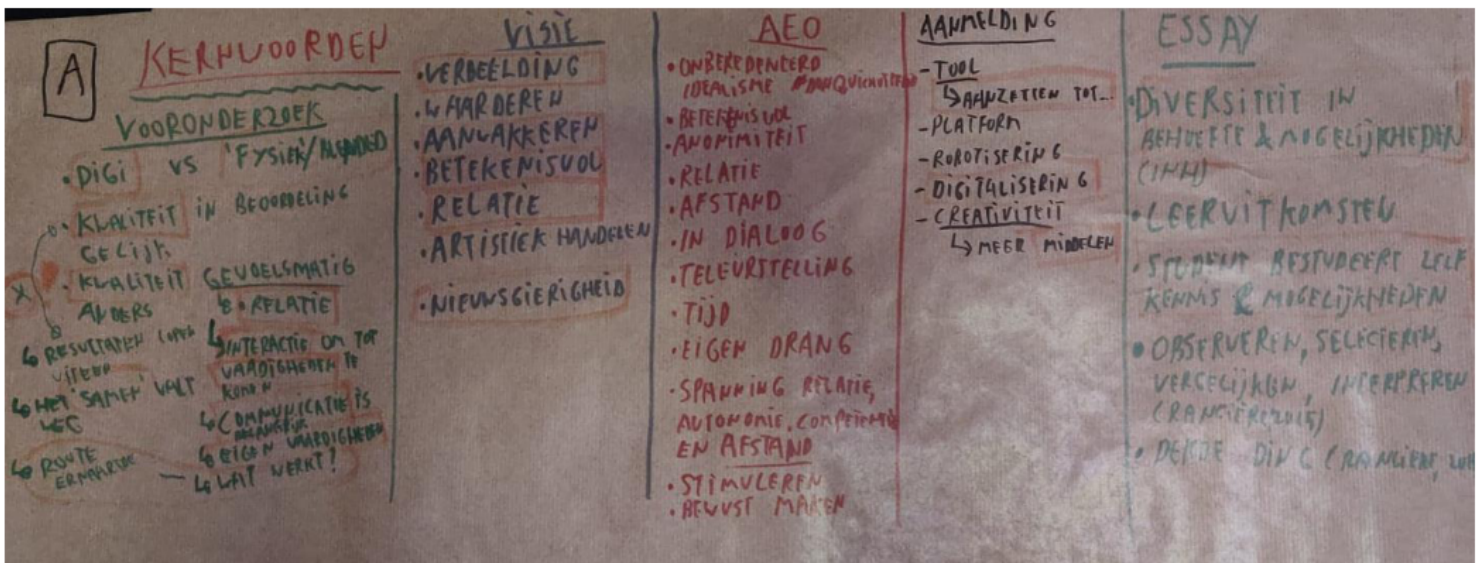 A
KERNWOORDEN
VOORONDERZOEK
• DIGI VS 'FYSIEK'/
• KWALITEIT IN BEOORDELING
GELIJK
X
• KWALITEIT GEVOELSMATIG
ANDERS
& • RELATIE
↳ RESULTATEN LOPEN
UITEEN
↳ INTERACTIE OM TOT
VAARDIGHEDEN TE
KOMEN
↳ HET 'SAMEN' VALT
WEG
↳ COMMUNICATIE IS
BELANGRIJK
↳ EIGEN VAARDIGHEDEN
↳ ROUTE
ERNAARTOE
↳ WAT WERKT?
VISIE
• VERBEELDING
• WAARDEREN
• AANWAKKEREN
• BETEKENISVOL
• RELATIE
• ARTISTIEK HANDELEN
• NIEUWSGIERIGHEID
AEO
• ONBEREDENEERD
IDEALISME
• BETEKENISVOL
• ANONIMITEIT
• RELATIE
• AFSTAND
• IN DIALOOG
• TELEURSTELLING
• TIJD
• EIGEN DRANG
• SPANNING RELATIE,
AUTONOMIE, COMPETENTIE
EN AFSTAND
• STIMULEREN
• BEWUST MAKEN
AANMELDING
- TOOL
↳ AANZETTEN TOT...
- PLATFORM
- ROBOTISERING
- DIGITALISERING
- CREATIVITEIT
↳ MEER MIDDELEN
ESSAY
• DIVERSITEIT IN
BEHOEFTE & MOGELIJKHEDEN
(INH)
• LEERUITKOMSTEN
• STUDENT BESTUDEERT ZELF
KENNIS & MOGELIJKHEDEN
• OBSERVEREN, SELECTEREN,
VERGELIJKEN, INTERPREREN
(RANCIÈRE, 2015)
• DERDE DING (RANCIÈRE,